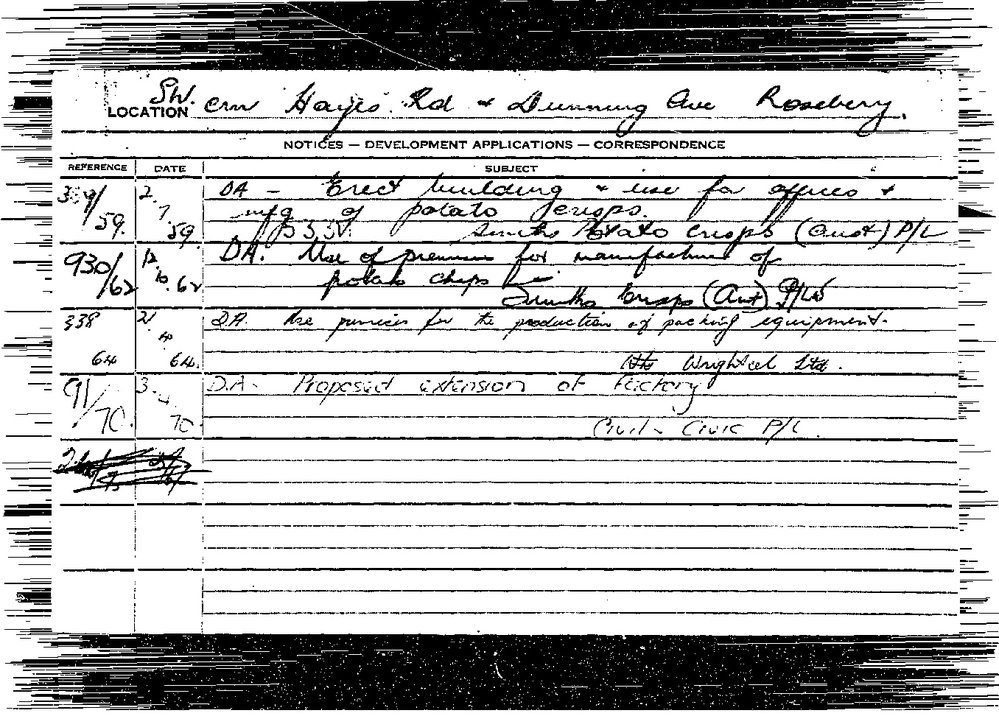 SW.
LOCATION crn Hayes Rd & Dunning Ave Rosebery.
NOTICES — DEVELOPMENT APPLICATIONS — CORRESPONDENCE
REFERENCE DATE SUBJECT
/59. 2.7.59. DA - Erect building & use for offices &
mfg of potato crisps.
Smiths Potato Crisps (Aust) P/L
930/62 12.10.62 DA. Use of premises for manufacture of
potato chips
Smiths Crisps (Aust) P/Ltd
338 21 D.A. Use premises for the production of packing equipment.
64 4 64. Wrightcel Ltd.
91/70. 3.4.70 D.A. Proposed extension of factory
Civil & Civic P/L.